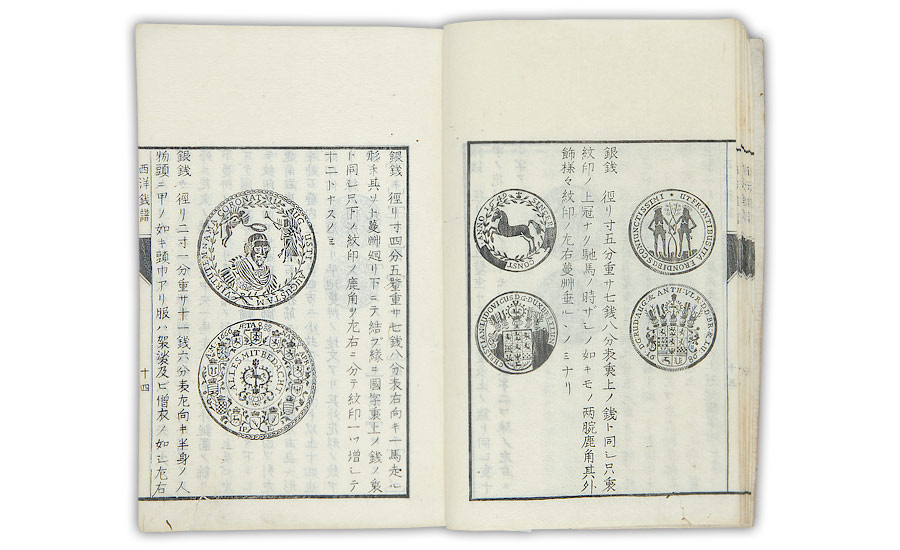 UT FRONTIBUS ITA FRONDIBUS CONIUNCTISSIMI
D G RUD AUG & ANTH VLR D D BR & LU
銀銭 徑リ寸五分重サ七銭八分表裏上ノ銭ト同シ只裏
紋印ノ上冠ナリ馳馬ノ時サシノ如キモノ両腕鹿角其外
飾様々紋印ノ左右蔓艸垂ルヽノミナリ
SINCER CONST ANT
CHRISTIAN LUDOVICUS D G DUX BR ET LUN
銀銭 徑リ寸四分五釐重サ七銭八分表右向キ一馬走ル
形チ其ソト蔓艸廻リ下ニテ結ブ縁ニ國字裏上ノ銭ノ裏
ト同シ只下ノ紋印ノ鹿角ヲ左右ニ分テ紋印一ツ増シテ
十二トナスノミ
VIRTUTEM NAM CORONAT HUIC AUGUSTI AUGUSTAM
ALLES MIT BEDACHT
銀銭 徑リ二寸一分重サ十一銭六分表左向キ半身ノ人
物頭ニ甲ノ如キ頭巾アリ服ハ袈裟及ビ僧衣ノ如シ左右
西洋銭譜
十四